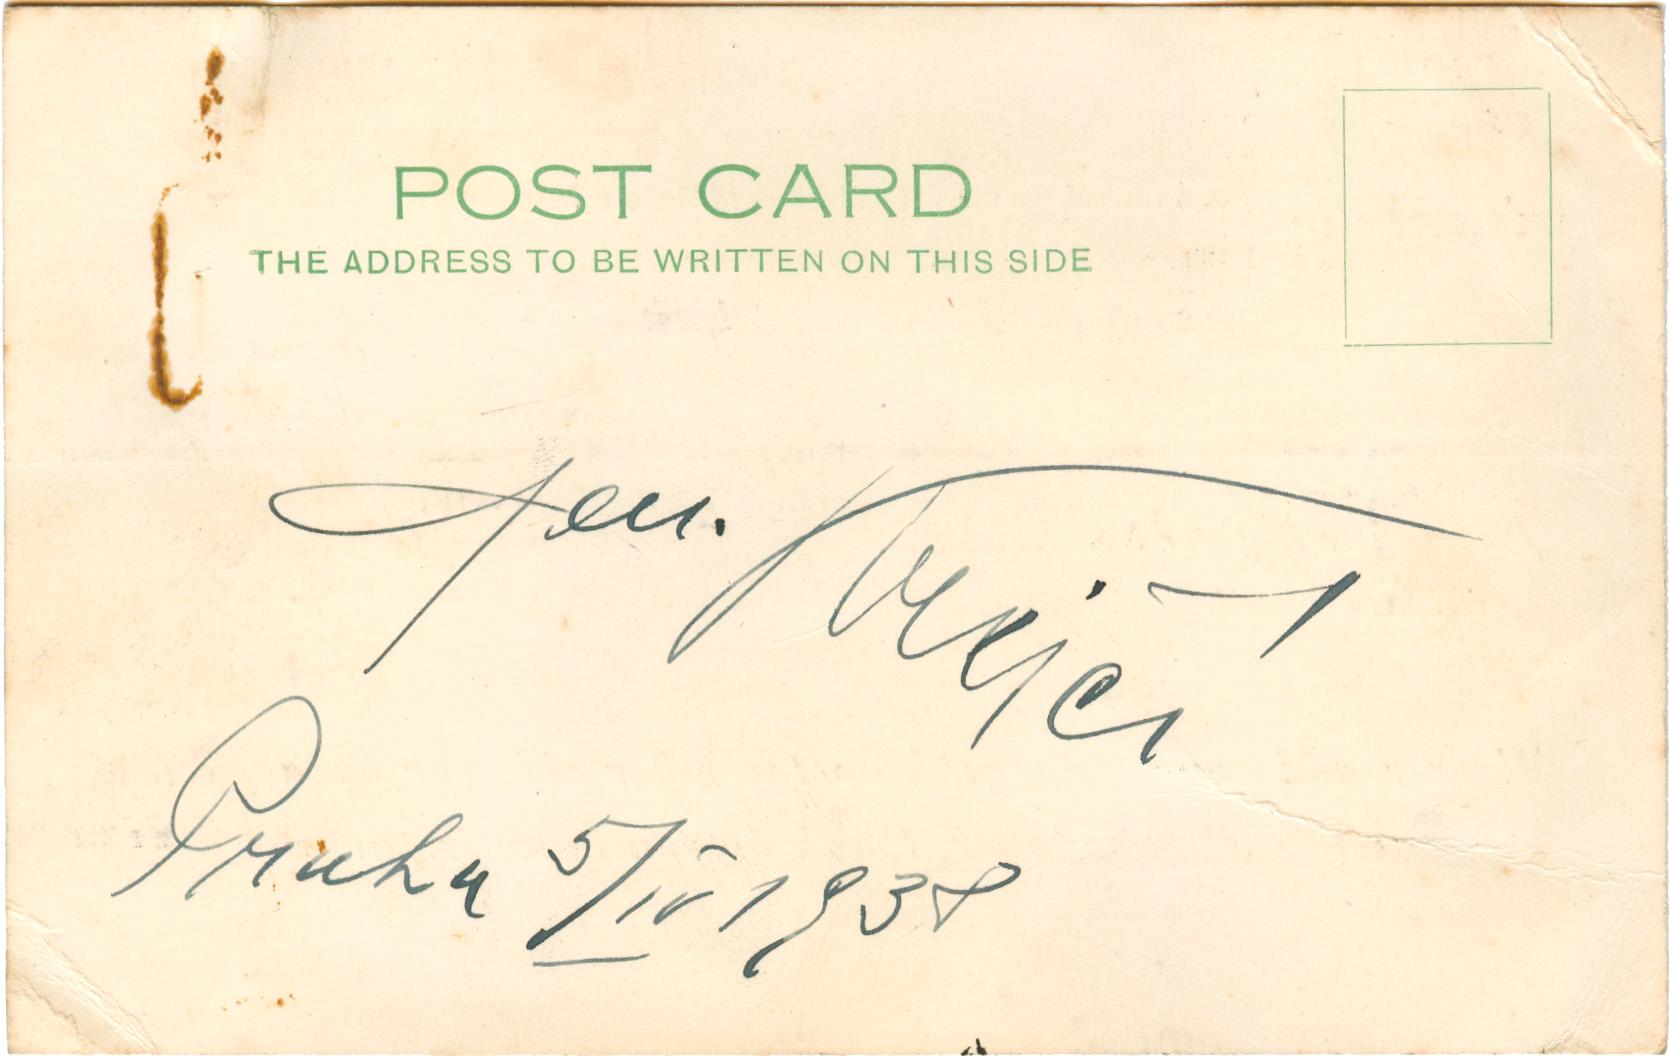 POST CARD
THE ADDRESS TO BE WRITTEN ON THIS SIDE
Gen. Krejčí
Praha 5/IV 1938